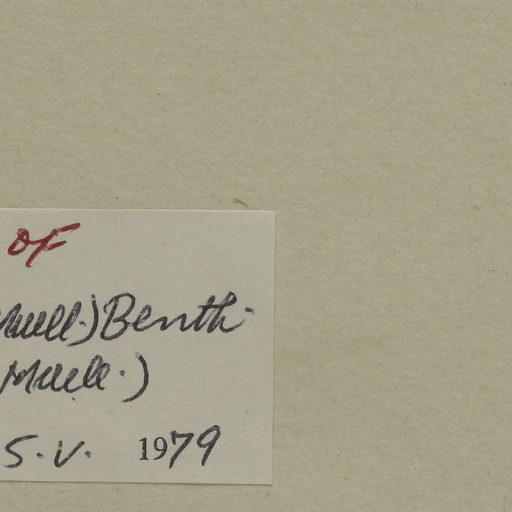 OF
Muell.) Benth.
Muell.)
5.V. 1979